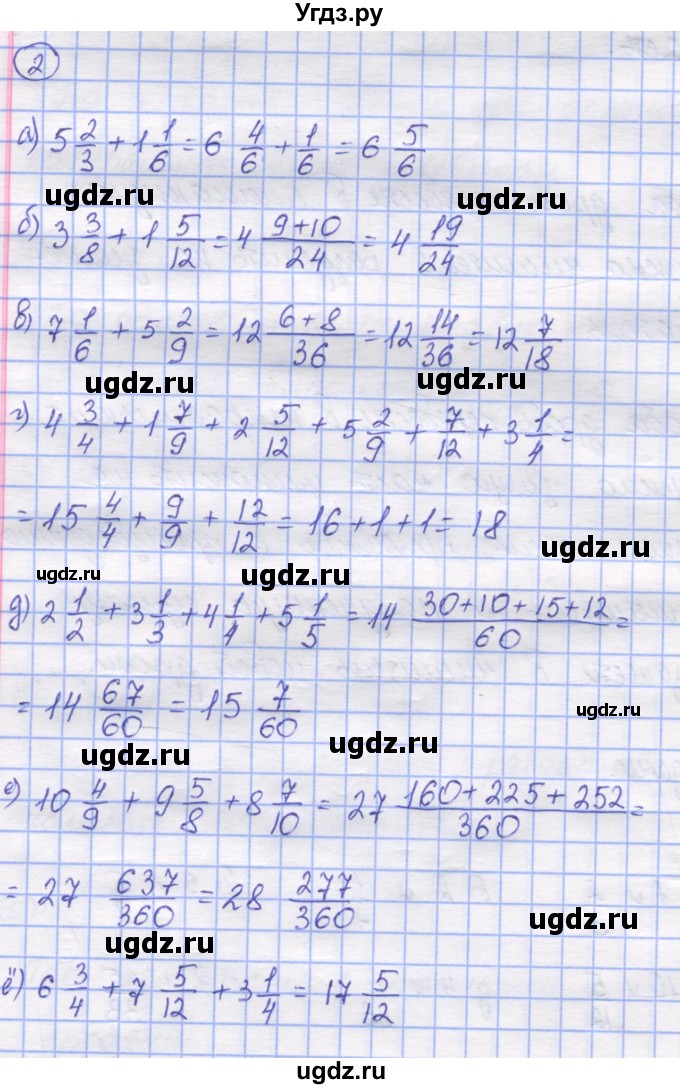 Угдз.ру
2
а) 5 2/3 + 1 1/6 = 6 4/6 + 1/6 = 6 5/6
ugdz.ru ugdz.ru
б) 3 3/8 + 1 5/12 = 4 (9+10)/24 = 4 19/24
ugdz.ru
в) 7 1/6 + 5 2/9 = 12 (6+8)/36 = 12 14/36 = 12 7/18
ugdz.ru ugdz.ru
г) 4 3/4 + 1 7/9 + 2 5/12 + 5 2/9 + 7/12 + 3 1/4 =
= 15 4/4 + 9/9 + 12/12 = 16 + 1 + 1 = 18
ugdz.ru
ugdz.ru ugdz.ru
д) 2 1/2 + 3 1/3 + 4 1/4 + 5 1/5 = 14 (30+10+15+12)/60 =
= 14 67/60 = 15 7/60
ugdz.ru
ugdz.ru
е) 10 4/9 + 9 5/8 + 8 7/10 = 27 (160+225+252)/360 =
= 27 637/360 = 28 277/360
ugdz.ru ugdz.ru
ё) 6 3/4 + 7 5/12 + 3 1/4 = 17 5/12
ugdz.ru